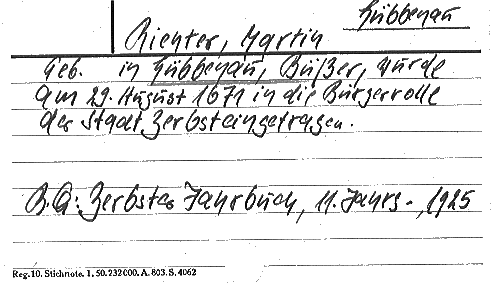 Lübbenau
Richter, Martin
Geb. in Lübbenau, Büßer, wurde
am 29. August 1671 in die Bürgerrolle
der Stadt Zerbst eingetragen.
B.A: Zerbster Jahrbuch, 11. Jahrg., 1925
Reg. 10. Stichnote. 1. 50. 232 000. A. 803. S. 4062